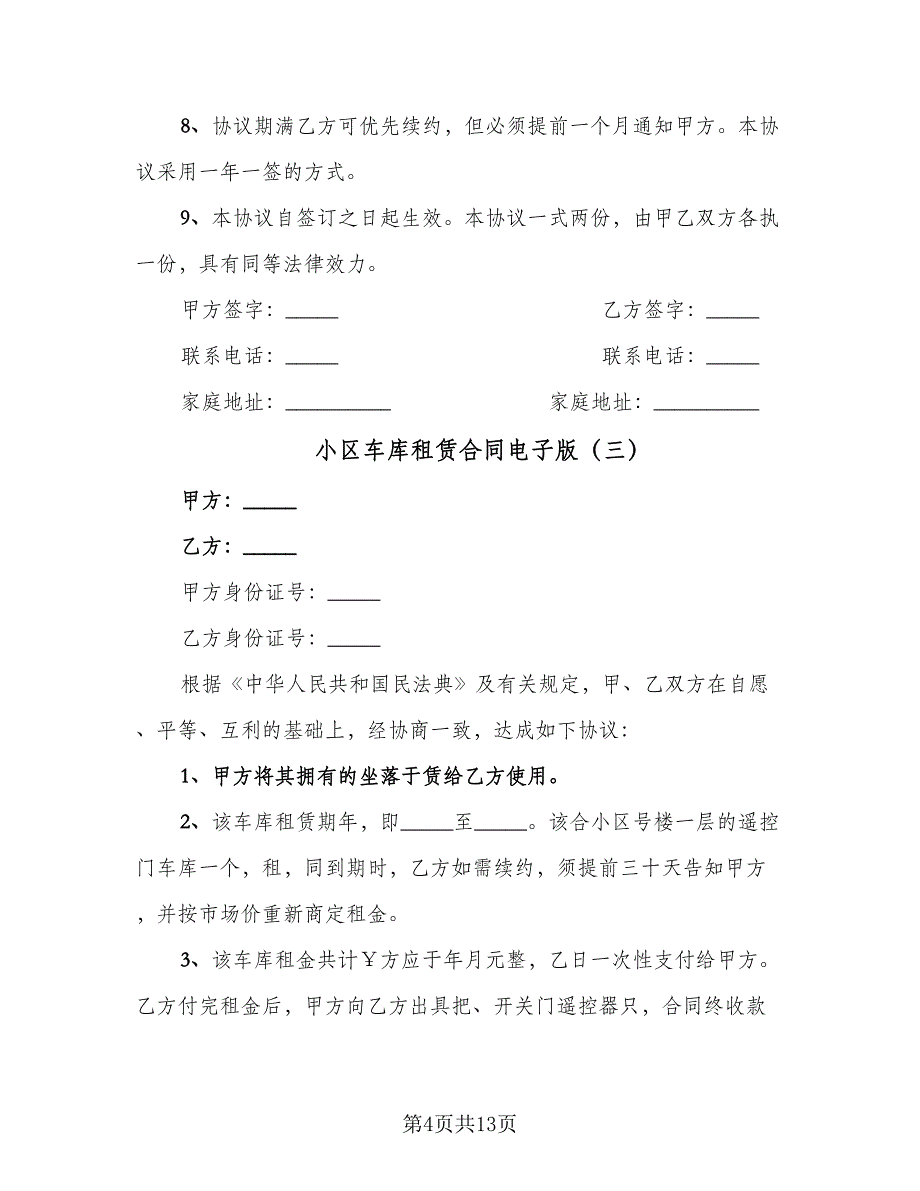 8、协议期满乙方可优先续约，但必须提前一个月通知甲方。本协
议采用一年一签的方式。
9、本协议自签订之日起生效。本协议一式两份，由甲乙双方各执
一份，具有同等法律效力。
甲方签字：_____ 乙方签字：_____
联系电话：_____ 联系电话：_____
家庭地址：__________ 家庭地址：__________
小区车库租赁合同电子版（三）
甲方：_____
乙方：_____
甲方身份证号：_____
乙方身份证号：_____
根据《中华人民共和国民法典》及有关规定，甲、乙双方在自愿
、平等、互利的基础上，经协商一致，达成如下协议：
1、甲方将其拥有的坐落于赁给乙方使用。
2、该车库租赁期年，即_____至_____。该合小区号楼一层的遥控
门车库一个，租，同到期时，乙方如需续约，须提前三十天告知甲方
，并按市场价重新商定租金。
3、该车库租金共计￥方应于年月元整，乙日一次性支付给甲方。
乙方付完租金后，甲方向乙方出具把、开关门遥控器只，合同终收款
第4页共13页